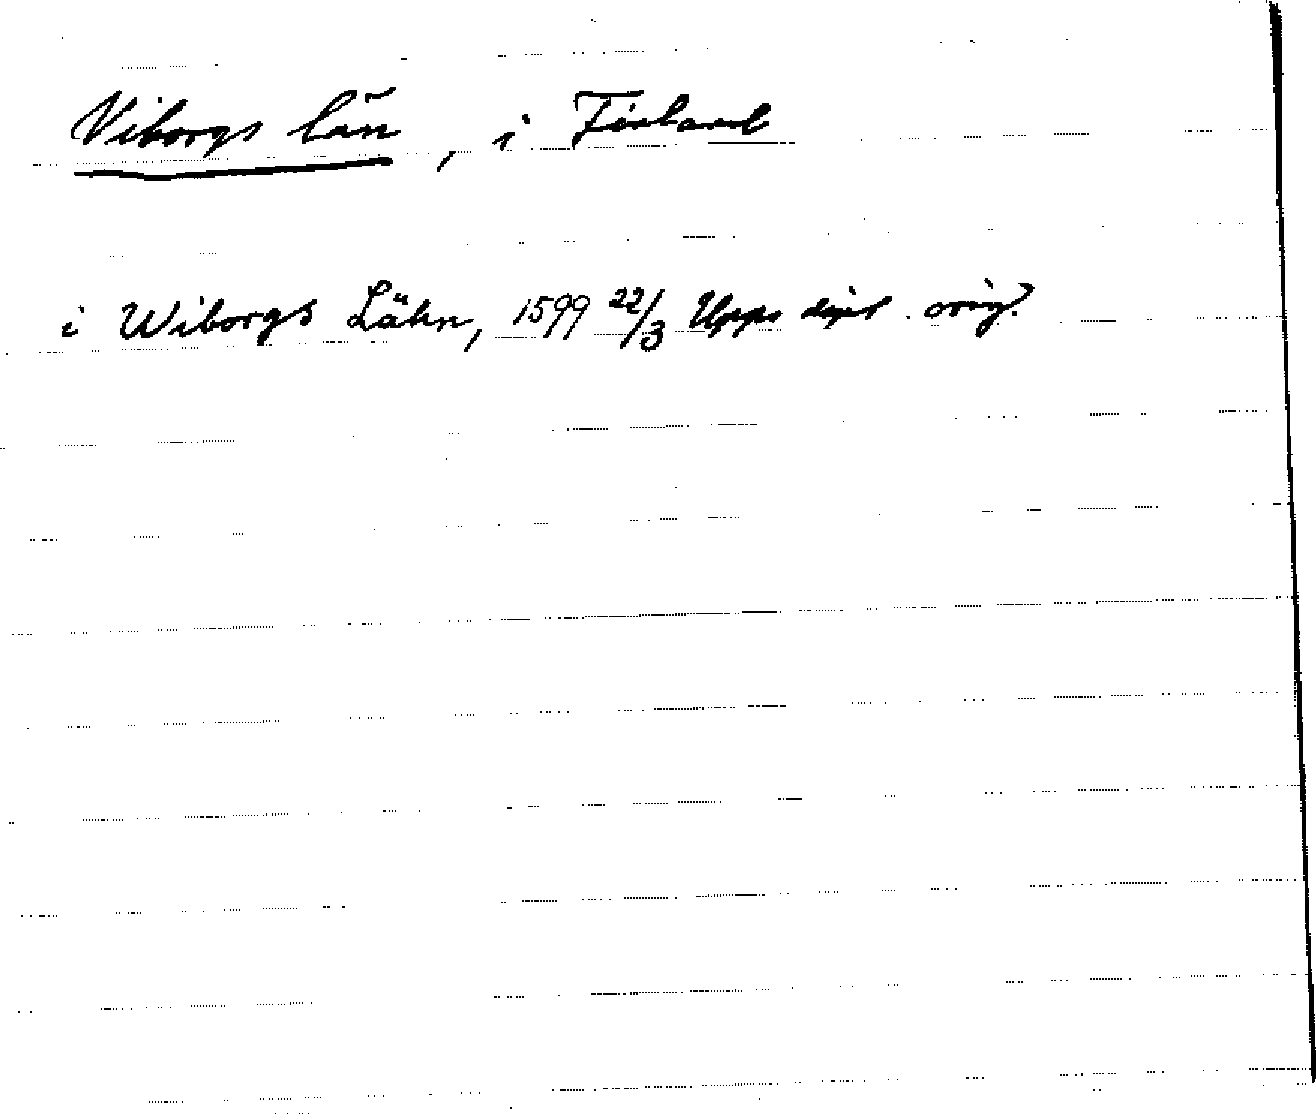 Viborgs län, i Finland
i Wiborgs Lähn, 1599 22/3 Upps dipl. orig.